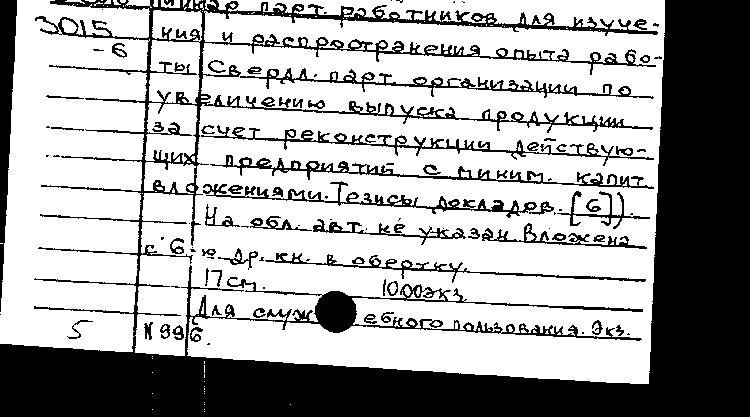 минар парт. работников для изуче-
3015 ния и распространения опыта рабо-
-6
ты Свердл. парт. организации по
увеличению выпуска продукции
за счет реконструкции действую-
щих предприятий с миним. капит.
вложениями. Тезисы докладов. [6]).
На обл. авт. не указан. Вложена
с 6-ю др. кн. в обертку.
17 см. 1000 экз.
Для служебного пользования. Экз.
5 N 996.